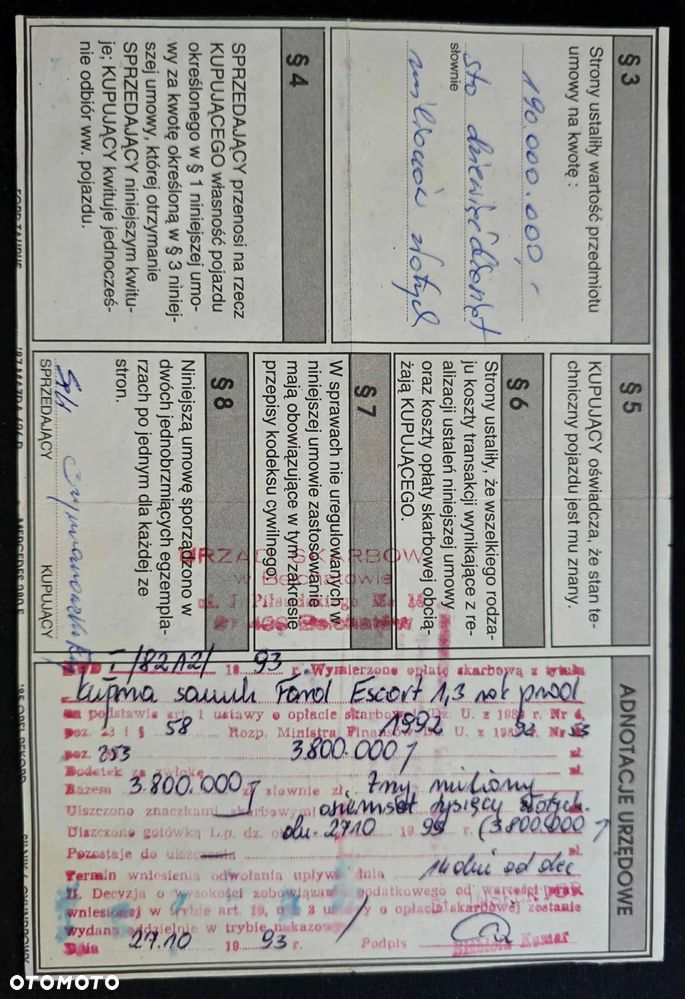 § 3
Strony ustaliły wartość przedmiotu
umowy na kwotę :
190.000.000,-
słownie
sto dziewięćdziesiąt
milionów złotych
§ 4
SPRZEDAJĄCY przenosi na rzecz
KUPUJĄCEGO własność pojazdu
określonego w § 1 niniejszej umo-
wy za kwotę określoną w § 3 niniej-
szej umowy, której otrzymanie
SPRZEDAJĄCY niniejszym kwitu-
je; KUPUJĄCY kwituje jednocześ-
nie odbiór ww. pojazdu.
§ 5
KUPUJĄCY oświadcza, że stan te-
chniczny pojazdu jest mu znany.
§ 6
Strony ustaliły, że wszelkiego rodza-
ju koszty transakcji wynikające z re-
alizacji ustaleń niniejszej umowy
oraz koszty opłaty skarbowej obcią-
żają KUPUJĄCEGO.
§ 7
W sprawach nie uregulowanych w
niniejszej umowie zastosowanie
mają obowiązujące w tym zakresie
przepisy kodeksu cywilnego.
§ 8
Niniejszą umowę sporządzono w
dwóch jednobrzmiących egzempla-
rzach po jednym dla każdej ze
stron.
SPRZEDAJĄCY KUPUJĄCY
URZĄD SKARBOWY
w Bełchatowie
ul. J. Piłsudskiego
ADNOTACJE URZĘDOWE
I/8212/ 1993 r. Wymierzono opłatę skarbową z tytułu
kupna samoch Ford Escort 1,3 rok prod
na podstawie art. 1 ustawy o opłacie skarbowej Dz. U. z 198 r. Nr 4,
1992
poz. 23 i § 58 Rozp. Ministra Finansów U. z 19 r. Nr 53
poz. 253 3.800.000 zł
Dodatek za zwłokę zł
Razem 3.800.000 słownie zł. trzy miliony
osiemset tysięcy złotych.
Uiszczono znaczkami skarbowymi
Uiszczono gotówką L.p. dz. dn. 27.10 1993 r. (3.800.000
Pozostaje do uiszczenia zł.
Termin wniesienia odwołania upływa dnia 14 dni od dec
II. Decyzja o wysokości zobowiązania podatkowego od wartości
wniesionej w trybie art. 10, ust. 3 ustawy o opłacie skarbowej zostanie
wydana oddzielnie w trybie nakazowym
Dnia 27.10 1993 r. Podpis
FORD TAURUS
'87 MAZDA 626 D
MERCEDES 280 E
'85 OPEL REKORD
OTOMOTO